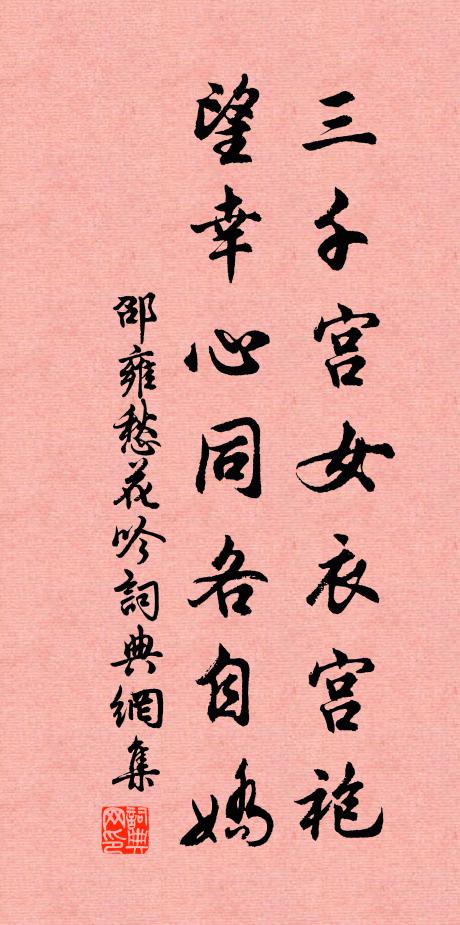 三千宫女衣宫袍
望幸心同各自嬌
邵雍愁花吟詞典網集
詞典
网印